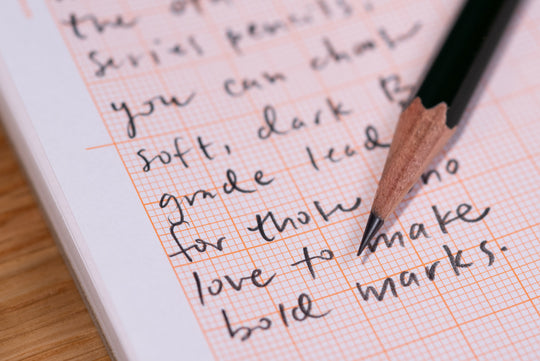 the
series pencils,
you can choose
soft, dark B
grade lead
for those
love to make
bold marks.